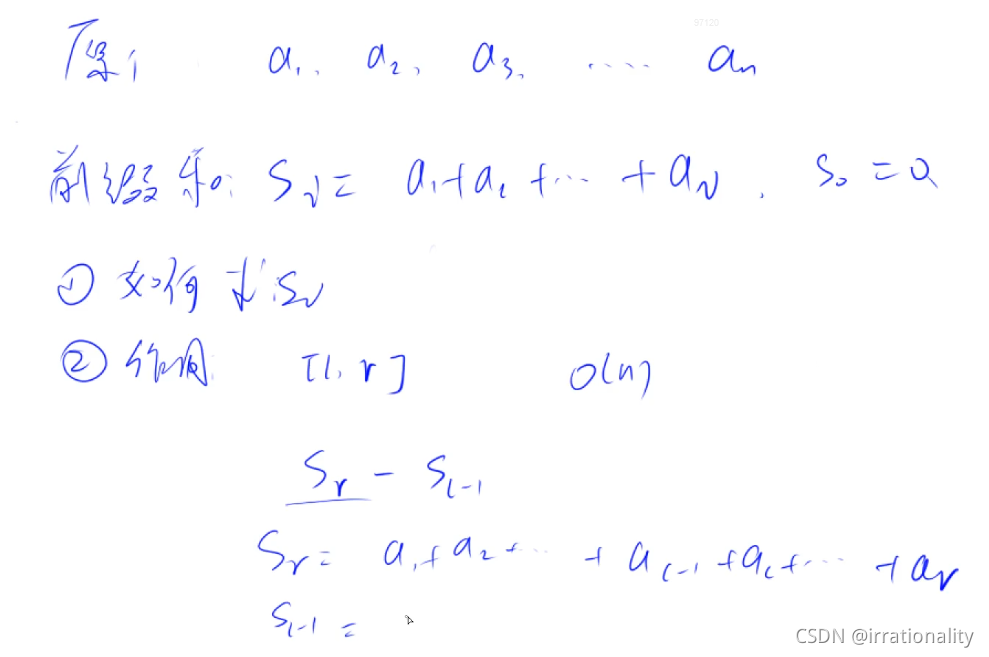 97120
a₁, a₂, a₃, ..... aₙ
前缀和: Sᵢ = a₁+a₂+...+aᵢ. S₀=0
① 如何求Sᵢ
② 作用: [l, r] O(n)
Sᵣ - Sₗ₋₁
Sᵣ = a₁+a₂+...+aₗ₋₁+aₗ+...+aᵣ
Sₗ₋₁ =
CSDN @irrationality